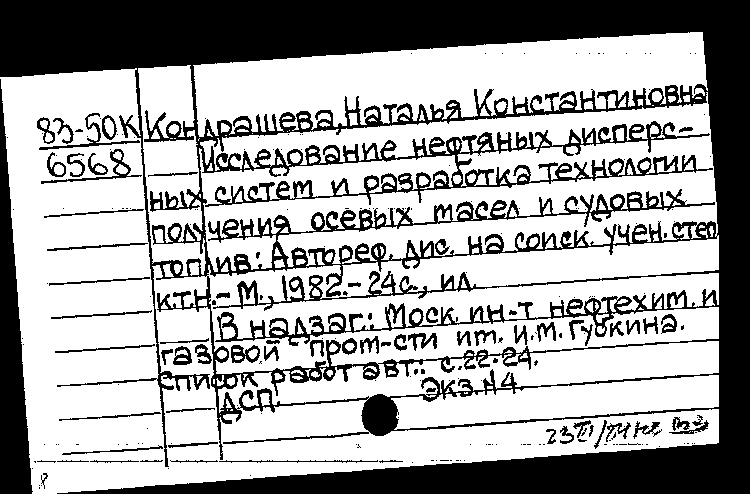 83-50К Кондрашева, Наталья Константиновна
6568 Исследование нефтяных дисперс-
ных систем и разработка технологии
получения осевых масел и судовых
топлив: Автореф. дис. на соиск. учен. степ
к.т.н. - М., 1982. - 24с., ил.
В надзаг.: Моск. ин-т нефтехим. и
газовой пром-сти им. И.М. Губкина.
Список работ авт.: с.22-24.
ДСП. Экз. №4.
8